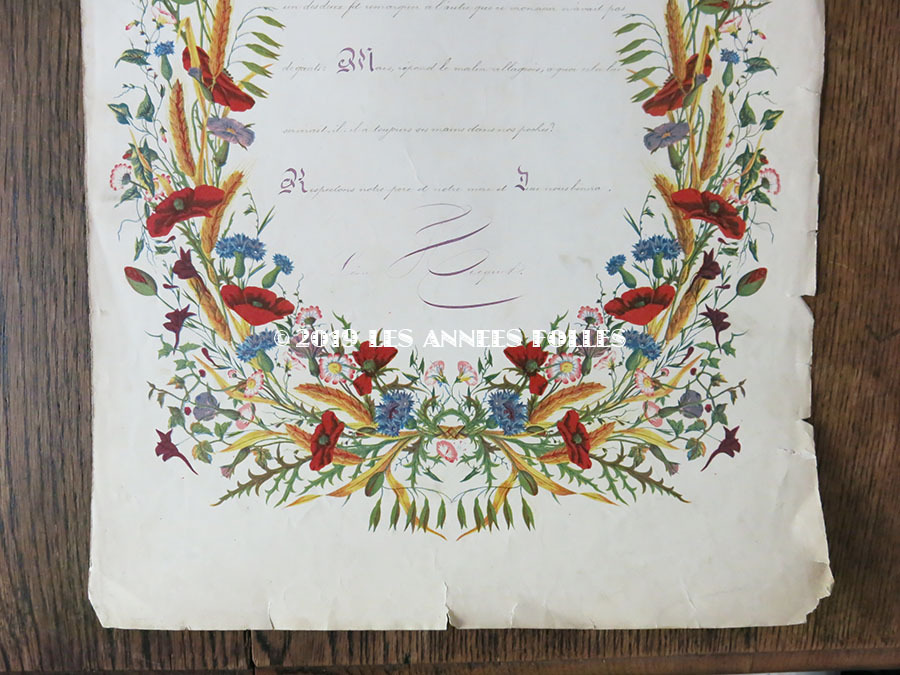 un des deux fit remarquer a l'autre que ce monsieur n'avait pas
de gants. Mais, répond le malin villageois, a quoi cela lui
servirait-il, il a toujours ses mains dans nos poches?
Respectons notre pere et notre mere et Dieu nous benira.
© 2019 LES ANNEES FOLLES